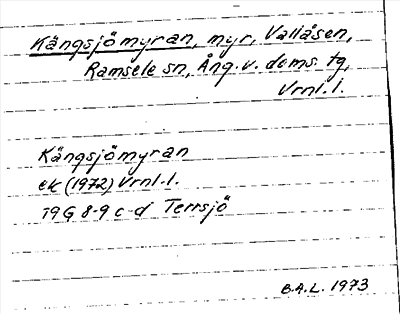 Kängsjömyran, myr, Vallåsen,
Ramsele sn, Ång. v. doms. tg,
Vrnl.l.
Kängsjömyran
ek (1972) Vrnl.l.
19G 8-9 c-d Terrsjö
B.A.L. 1973